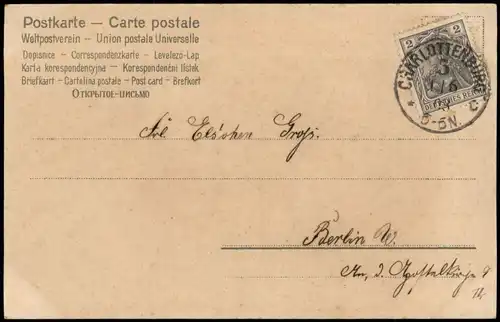 Postkarte — Carte postale
Weltpostverein — Union postale Universelle
Dopisnice — Correspondenzkarte — Levelező-Lap
Karta korespondencyjna — Korespondenční lístek
Briefkart — Cartolina postale — Post card — Brefkort
Открытое-письмо
2 2
DEUTSCHES REICH
CHARLOTTENBURG
5
5-6N.
Frl. Elschen Groß.
Berlin W.
An. d. Apostelkirche
12